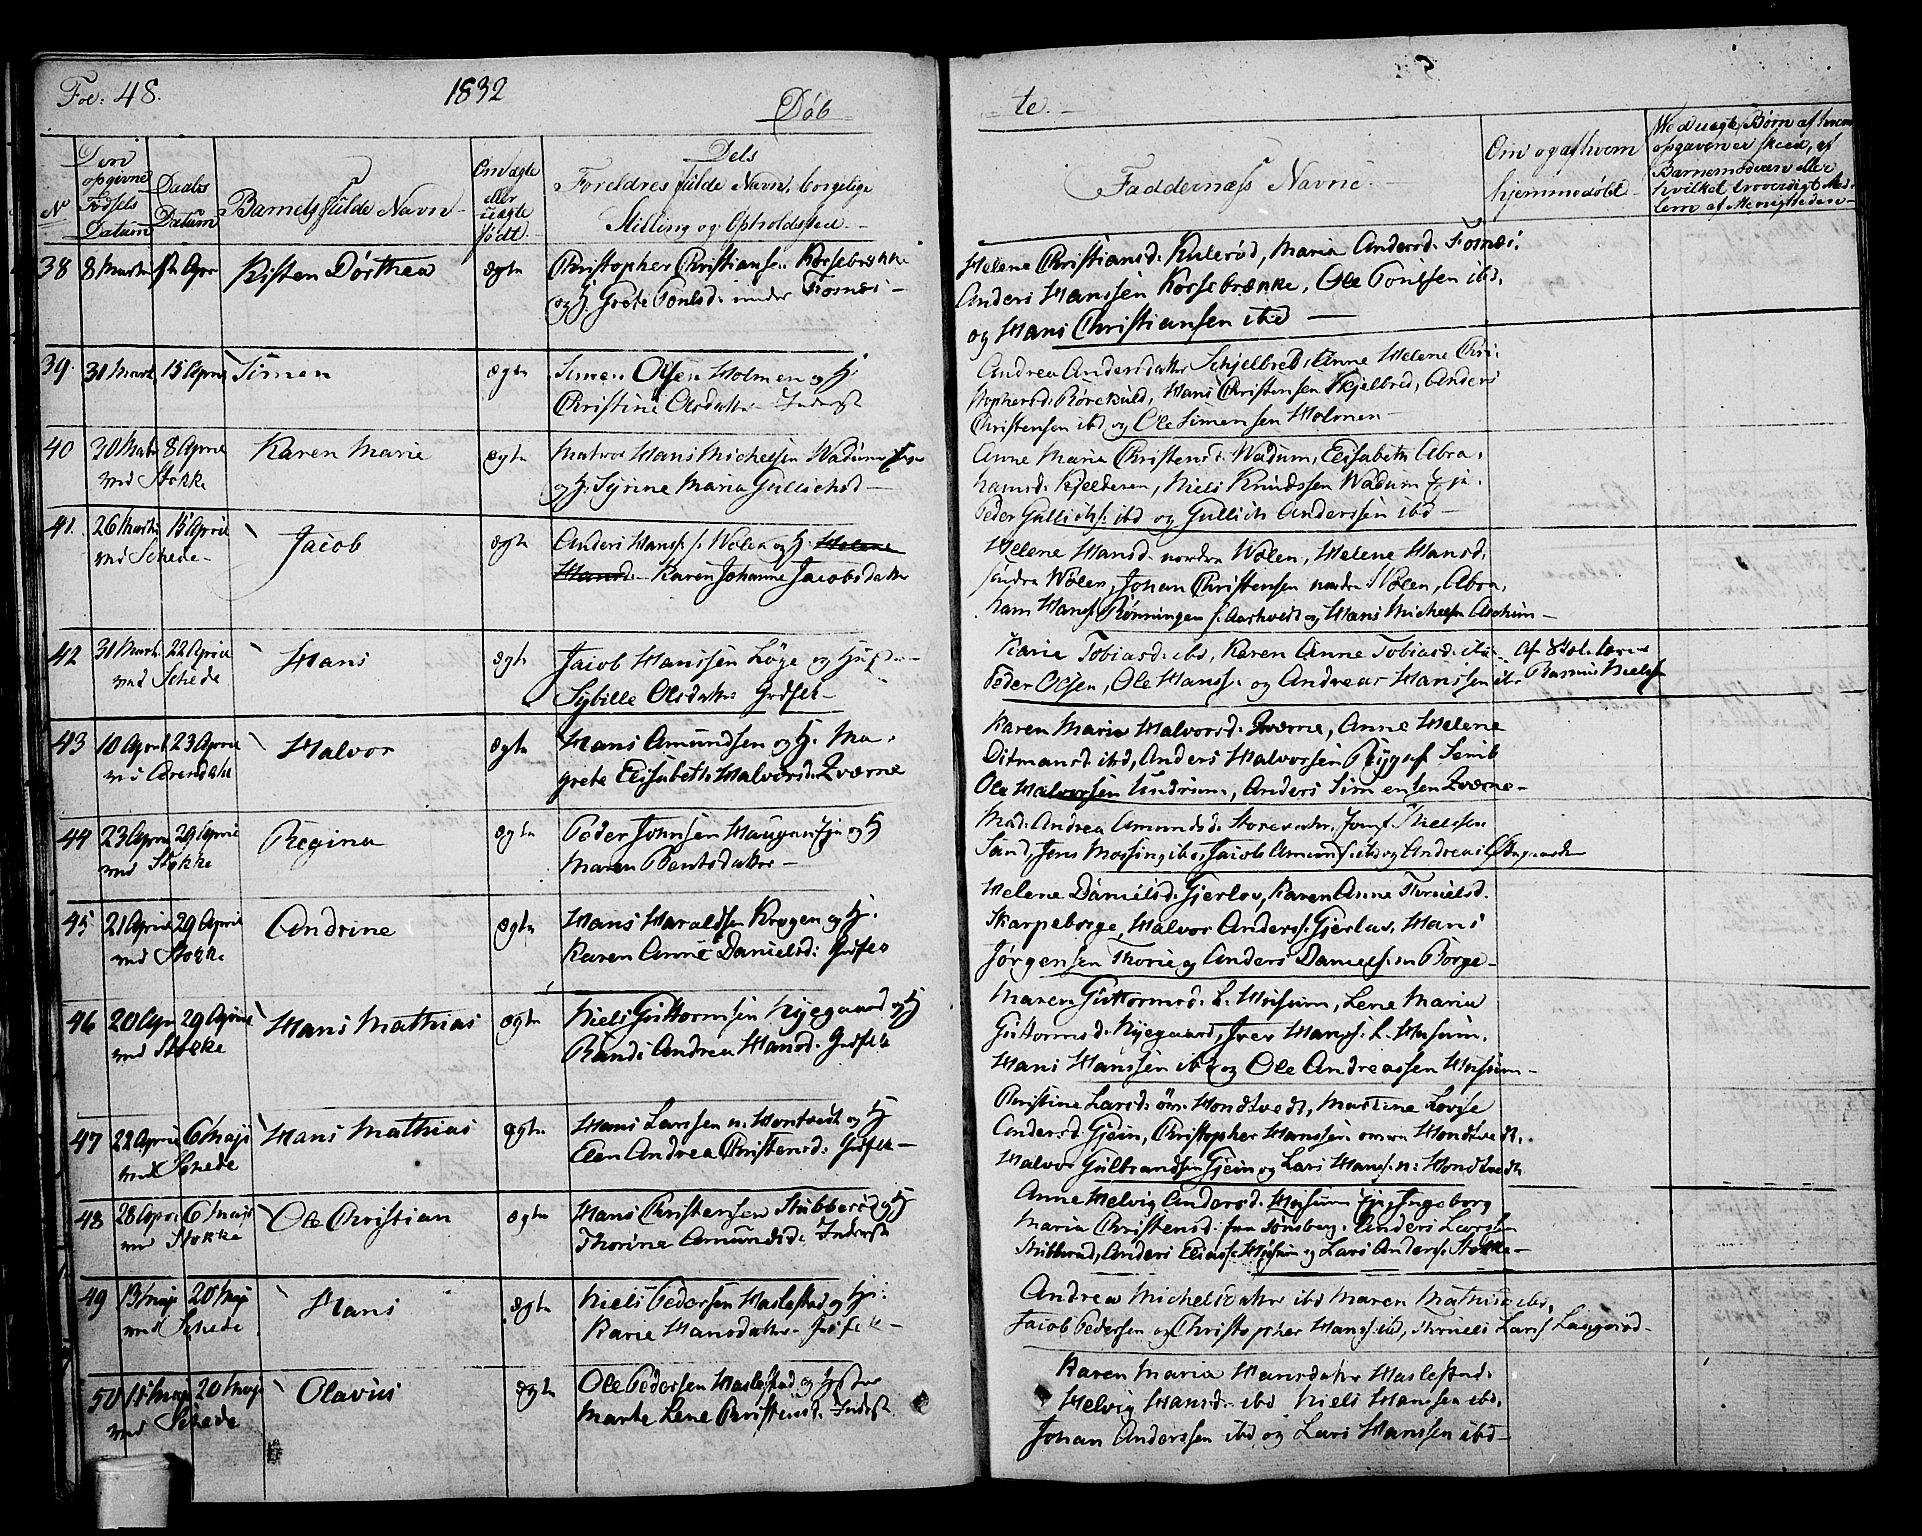 Fol: 48.
1832
Døb
te.
No
Deri opgivne Fødsels Datum
Daabs Datum
Barnets fulde Navn
Om ægte eller uægte født.
Dels
Foreldres fulde Navn, borgelige
Stilling og Opholdssted.
Faddernæs Navne
Om og af hvem
hjemmedøbt
Børn af hvem
opgaven er skeed, af
Barnemoderen eller
hvilket troværdigt Med-
lem af Menigheden
38 8 Marts 1ste Apr Kisten Dorthea ægte
Christopher Christians: Korsebrække
og H: Grete Pouls d: under Fosnæs
Helene Christiansd: Kulerød, Maria Andersd: Fosnæs
Anders Hanssen Korsebrække, Ole ibd,
og Hans Christiansen ibd
39. 31 Mart 15 April Simen ægte
Simen Olsen Holmen og H:
Christine Olsdatter Inderst
Andrea Andersdatter Schjelbred, Anne Helene Chri-
stophersd: Hans Christensen Skjelbred, Anders
Christensen ibd og Ole Simensen Holmen
40 30 Mart 8 April Karen Marie ægte
ved Stokke
Matros Hans Michelsen Wadum
og H: Syrine Maria Gullichsd
Anne Maria Christensd: Wadum, Elisabeth Abra-
hamsd: Niels Knudssen Wadum
Peder Gullichs: ibd og Gullich Anderssen ibd
41. 26 Marts 15 April Jacob ægte
ved Schede
Anders Hans: s: Wølen og H: Helene
Hansd: Karen Johanne Jacobsdatter
Helene Hansd: nordre Wølen, Helene Hansd:
søndre Wølen, Johan Christensen nordre Wølen, Abra-
ham Hans: Rønningen og Hans Michelsen
42 31 Mart 22 April Hans ægte
ved Schede
Jacob Hanssen Løge og Hustru
Sybille Olsdatter Gredsek
Karie Tobiasd: ibd, Karen Anne Tobiasd: ibd
Peder Olsen, Ole Hanss: og Andreas Hanssen ibd
Af Skol:
Rasmus Nielsen
43 10 April 23 April Halvor ægte
ved Arendahl
Hans Amundsen og H: Ma-
grete Elisabeth Halvorsd: Zværne
Karen Maria Halvorsd: Zværne, Anne Helene
Ditmansd: ibd, Anders Halvorssen Semb
Ole Halvorsen Undrum, Anders Simensen Zværne
44 23 April 29 April Regina ægte
ved Stokke
Peder Johnsen Haugan og H
Maren Bentsdatter
Mad: Andrea Amundsd: Jomf: Nielsen
Sand, Jens Mossing ibd, Jacob Amunds: ibd og Andreas
45 21 April 29 April Andrine ægte
ved Stokke
Hans Haraldsen Krogen og H:
Karen Anne Danielsd:
Helene Danielsd: Gjerlov, Karen Anne
Skarpeborge, Halvor Anders: Gjerlov, Hans
Jørgensen Thorie og Anders Danielsen Borge
46 20 Apr 29 April Hans Mathias ægte
ved Stokke
Niels Guttormsen Nyegaard og H
Randi Andrea Hansd:
Maren Guttormsd: L: Husum, Lene Maria
Guttormsd: Nyegaard, Iver Hanss: L: Husum,
Hans Hanssen ibd og Ole Andreassen Husum
47 22 April 6 Maji Hans Mathias ægte
ved Schede
Hans Larssen n: Hontvedt og H
Elen Andrea Christensd:
Christine Larsd: Hondtvedt, Martine Lovise
Andersd: Gjein, Christopher Hanssen Hondtvedt,
Halvor Gulbrandsen Gjein og Lars Hans: n: Hondtvedt
48 28 April 6 Maji Ole Christian ægte
ved Stokke
Hans Christensen Stubberød og H
Thorine Amundsd: Inderst
Anne Helvig Andersd: Husum Ingeborg
Maria Christensd: fra Tønsberg, Anders Larsen
Stubberød, Anders Elias: Husum og Lars Anders: Stokke
49 13 Maji 20 Maji Hans ægte
ved Schede
Niels Pedersen Haslestad og H:
Karie Hansdatter
Andrea Michelsdatter ibd Maren Mathisd: ibd,
Jacob Pedersen og Christopher Hans: ibd, Lars
50 15 Maji 20 Maji Olavus ægte
ved Schede
Ole Pedersen Haslestad og Hustru
Marte Lene Christensd: Inderst
Karen Maria Hansdatter Haslestad,
Helvig Hansd: ibd Niels Hanssen ibd,
Johan Anderssen ibd og Lars Hanssen ibd